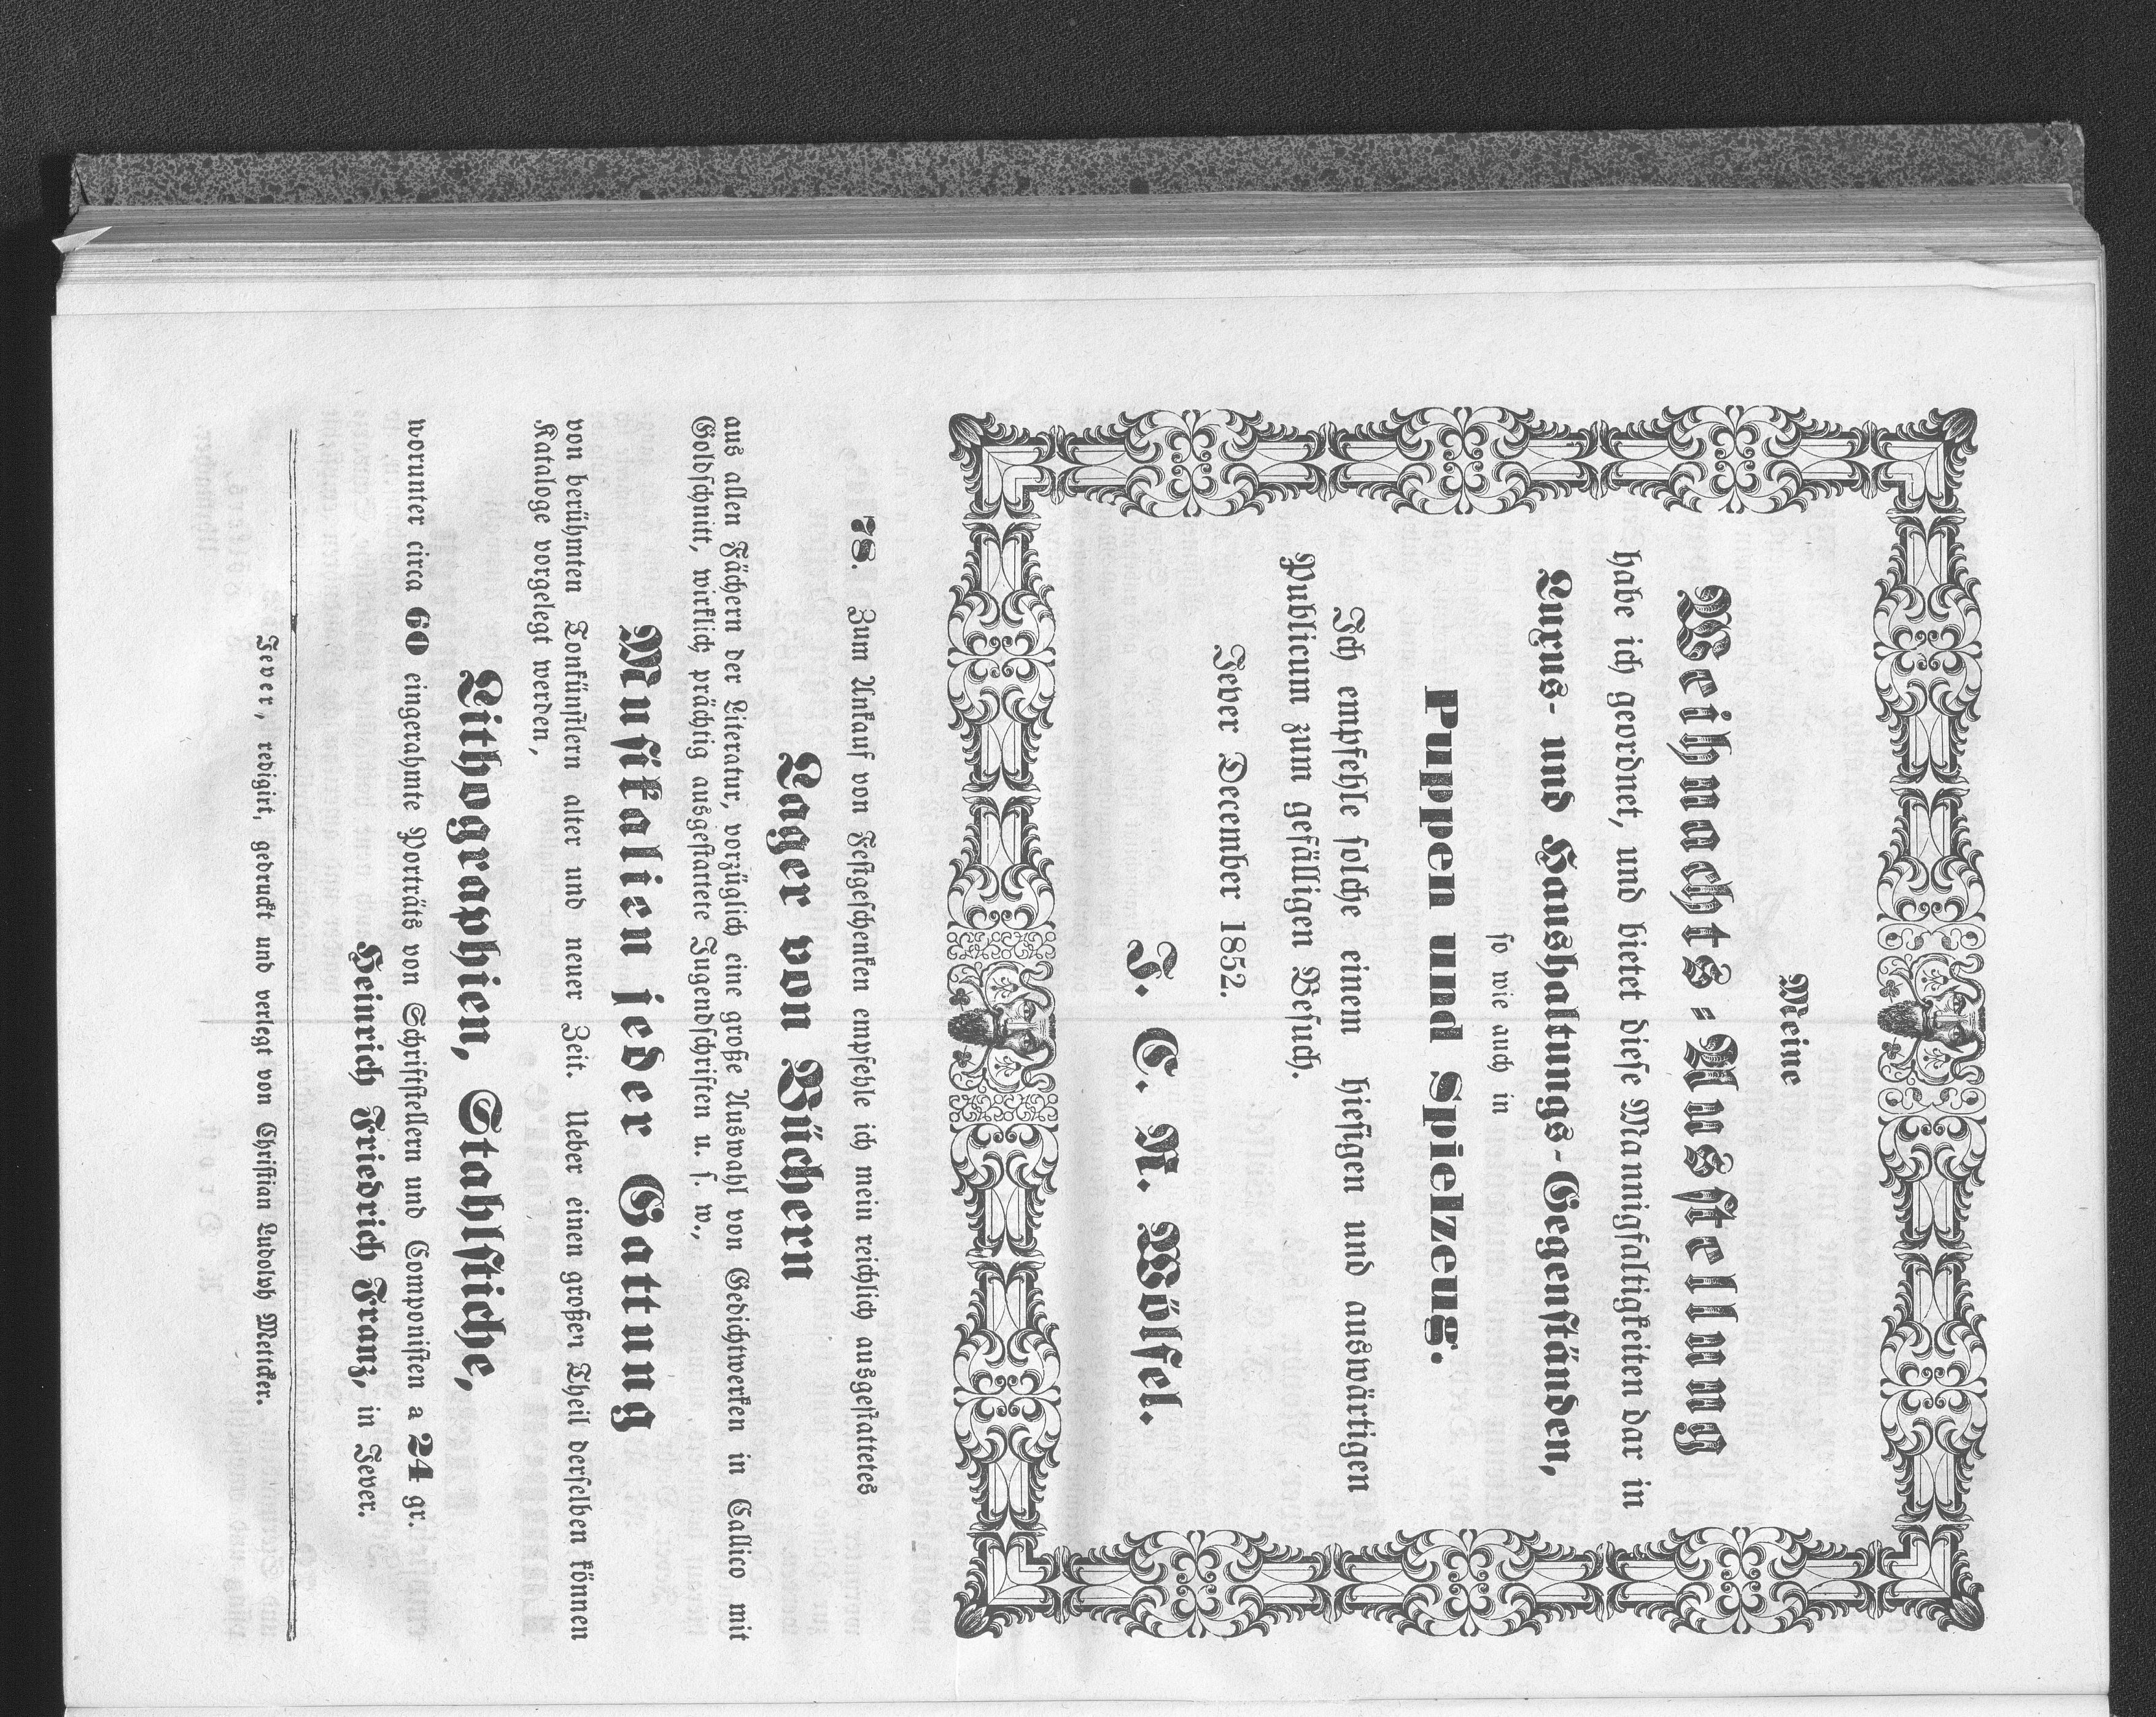 Meine
Weihnachts-Ausstellung
habe ich geordnet, und bietet diese Mannigfaltigkeiten dar in
Luxus- und Haushaltungs-Gegenständen,
so wie auch in
Puppen und Spielzeug.
Ich empfehle solche einem hiesigen und auswärtigen
Publicum zum gefälligen Besuch.
Jever December 1852.
J. C. R. Wölfel.
78. Zum Ankauf von Festgeschenken empfehle ich mein reichlich ausgestattetes
Lager von Büchern
aus allen Fächern der Literatur, vorzüglich eine große Auswahl von Gedichtwerken in Callico mit
Goldschnitt, wirklich prächtig ausgestartete Jugendschriften u. s. w.,
Musikalien jeder Gattung
von berühmten Tonkünstlern alter und neuer Zeit. Ueber einen großen Theil derselben können
Kataloge vorgelegt werden,
Lithographien, Stahlstiche,
worunter circa 60 eingerahmte Porträts von Schriftstellern und Componisten a 24 gr.
Heinrich Friedrich Franz, in Jever.
Jever, redigirt, gedruckt und verlegt von Christian Ludolph Mettcker.